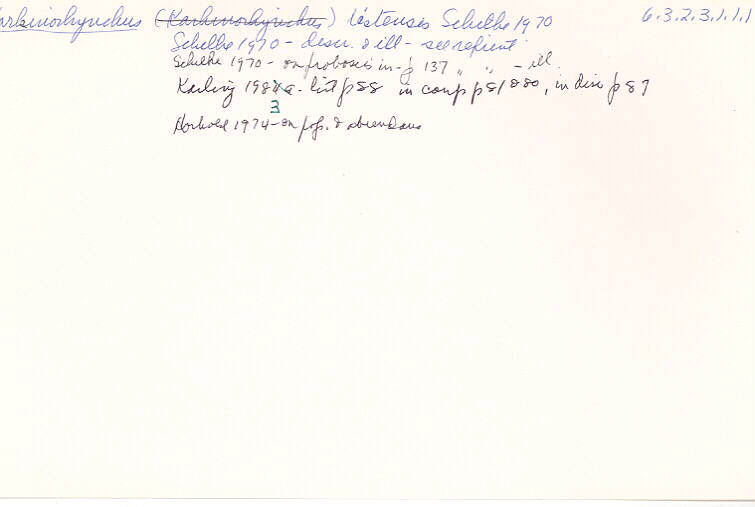 arkinorhynchus (Karkinorhynchus) listensis Schilke 1970 6.3.2.3.1.1.1
Schilke 1970 - descr. & ill - see reprint
Schilke 1970 - on proboscis in - p 137 " " - ill.
Karling 1983 - list p 58 in comp p 51 & 80, in div p 87
1974 - on pop. &